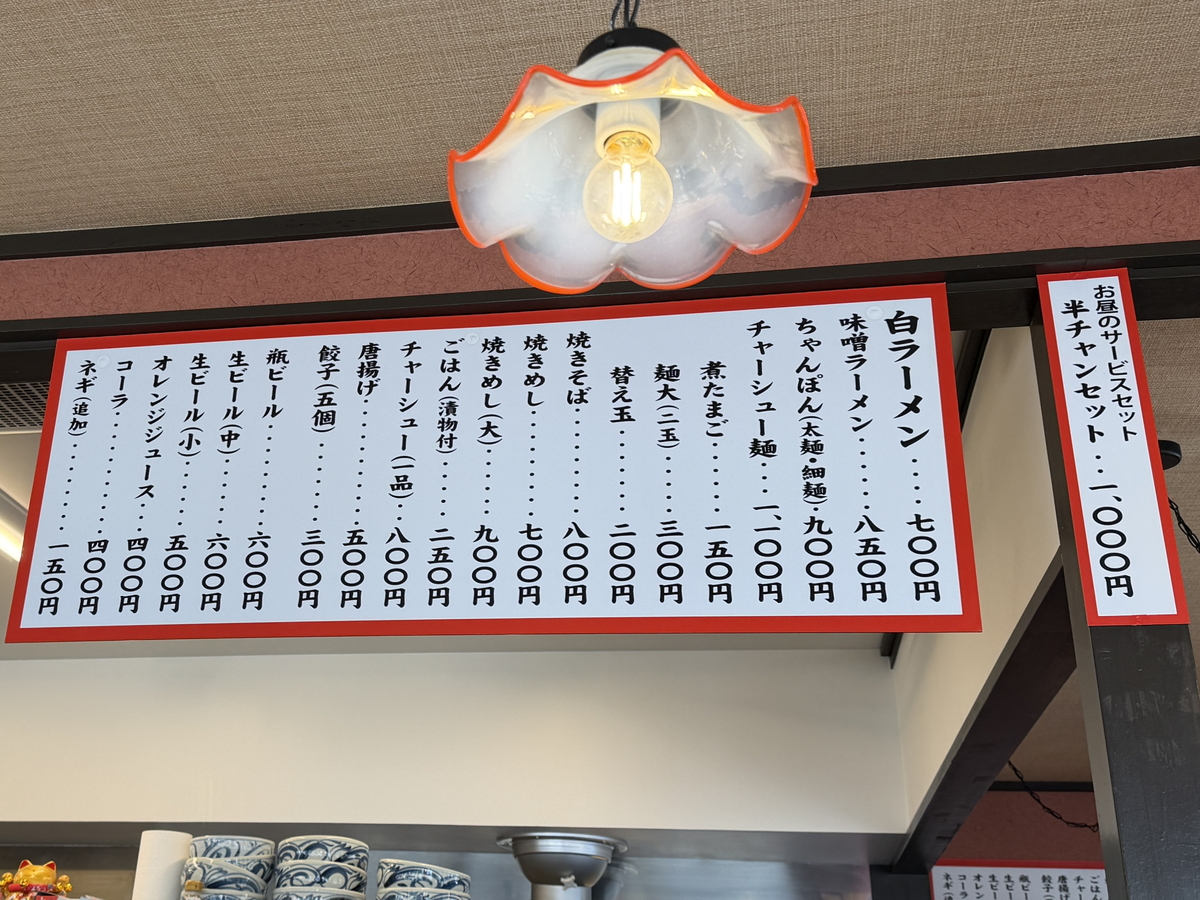 お昼のサービスセット
半チャンセット・・一、〇〇〇円
白ラーメン・・・・七〇〇円
味噌ラーメン・・・・・八五〇円
ちゃんぽん(太麺・細麺)・九〇〇円
チャーシュー麺・・・一、一〇〇円
煮たまご・・・・・・一五〇円
麺大(二玉)・・・・・三〇〇円
替え玉・・・・・・・二〇〇円
焼きそば・・・・・・・・八〇〇円
焼きめし・・・・・・・・七〇〇円
焼きめし(大)・・・・・・九〇〇円
ごはん(漬物付)・・・・・二五〇円
チャーシュー(一品)・・八〇〇円
唐揚げ・・・・・・・・・・五〇〇円
餃子(五個)・・・・・・・三〇〇円
瓶ビール・・・・・・・・六〇〇円
生ビール(中)・・・・・・六〇〇円
生ビール(小)・・・・・・五〇〇円
オレンジジュース・・・四〇〇円
コーラ・・・・・・・・・・四〇〇円
ネギ(追加)・・・・・・・・一五〇円
ごはん
チャー
唐揚げ
餃子(
瓶ビー
生ビー
生ビー
オレン
コーラ
ネギ(